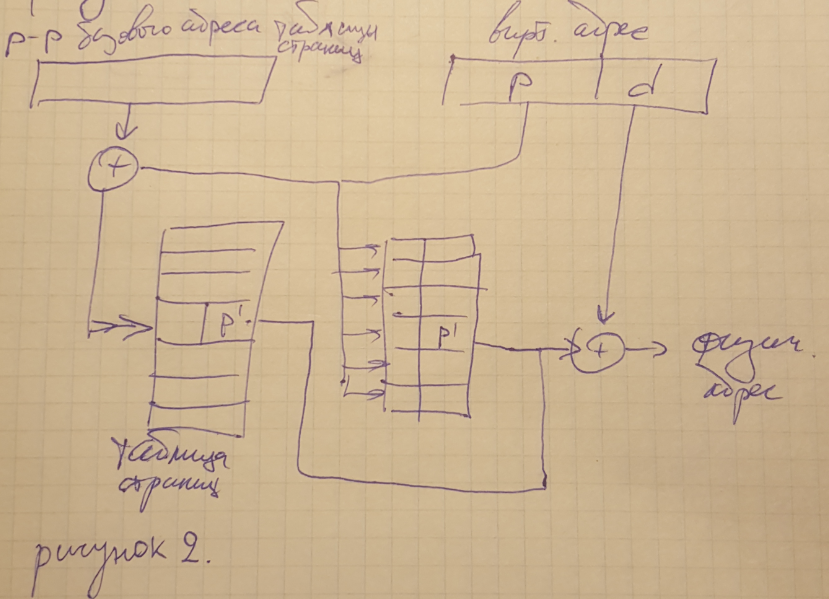 р-р базового адреса таблицы
страниц
вирт. адрес
p d
+
p'
p'
+
физич.
адрес
Таблица
страниц
рисунок 2.